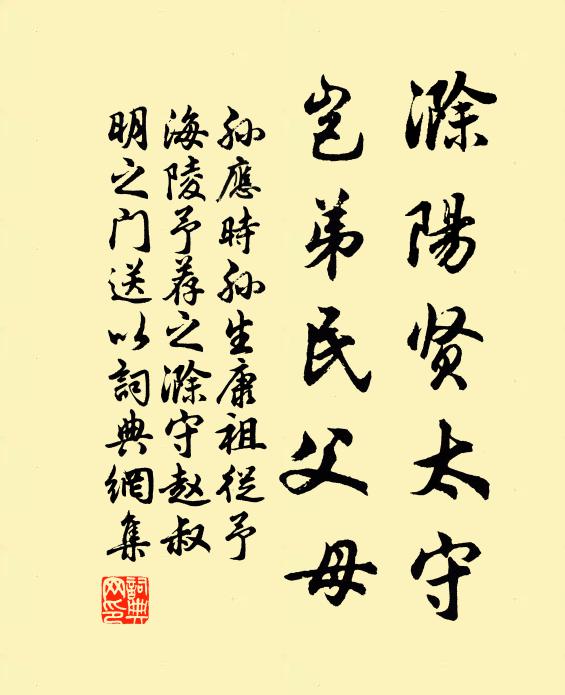 滁陽贤太守
岂弟民父母
孙應時孙生康祖從予
海陵予荐之滁守赵叔
明之门送以詞典網集
詞典网印